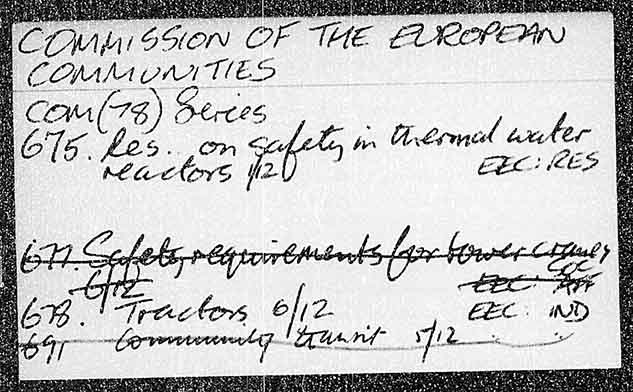 COMMISSION OF THE EUROPEAN
COMMUNITIES
COM(78) Series
675. Res. on safety in thermal water
reactors 1/12 EEC: RES
677. Safety requirements for tower cranes
6/12 EEC: SOC AFF
678. Tractors 6/12 EEC: IND
691 Community transit 5/12